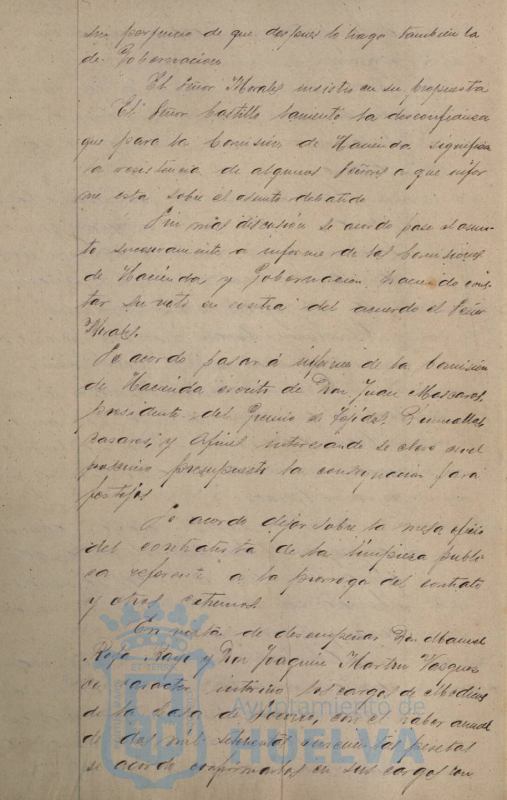 sin perjuicio de que despues lo haga tambien la
de Gobernacion
El Señor Morales insistio en su propuesta
El Señor Castillo lamentó la desconfianza
que para la Comision de Hacienda significa
la resistencia de algunos Señores a que infor
me esta sobre el asunto debatido
Sin mas discusion se acordo pase el asun-
to sucesivamente a informe de las Comisiones
de Hacienda y Gobernacion, haciendo cons
tar su voto en contra del acuerdo el Señor
Morales.
Se acordo pasar á informe de la Comision
de Hacienda escrito de Don Juan Mascaros,
presidente del Gremio de Tejidos,
bazares y afines interesando se eleve en el
proximo presupuesto la consignacion para
festejos
Se acordo dejar sobre la mesa oficio
del contratista de la limpieza publi
ca referente a la prorroga del contrato
y otros extremos
En vista de desempeñar Don Manuel
Rofa Rayo y Don Joaquin Martin Vazquez
con caracter interino los cargos de Medicos
de la Casa de Socorro, con el haber anual
de dos mil setecientas cincuenta pesetas
se acordo confirmarlos en sus cargos con
Ayuntamiento de
HUELVA